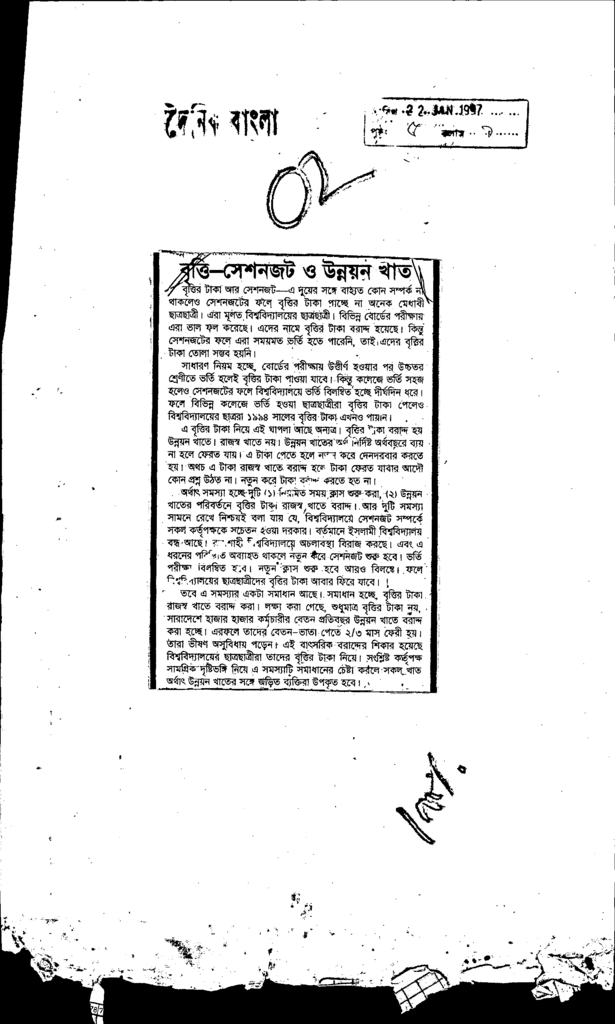 দৈনিক বাংলা
22 JAN 1997
পৃষ্ঠা ৫ কলাম
বৃত্তি—সেশনজট ও উন্নয়ন খাত
বৃত্তির টাকা আর সেশনজট—এ দুয়ের সঙ্গে বাহ্যত কোন সম্পর্ক না
থাকলেও সেশনজটের ফলে বৃত্তির টাকা পাচ্ছে না অনেক মেধাবী
ছাত্রছাত্রী। এরা মূলত বিশ্ববিদ্যালয়ের ছাত্রছাত্রী। বিভিন্ন বোর্ডের পরীক্ষায়
এরা ভাল ফল করেছে। এদের নামে বৃত্তির টাকা বরাদ্দ হয়েছে। কিন্তু
সেশনজটের ফলে এরা সময়মত ভর্তি হতে পারেনি, তাই এদের বৃত্তির
টাকা তোলা সম্ভব হয়নি।
সাধারণ নিয়ম হচ্ছে, বোর্ডের পরীক্ষায় উত্তীর্ণ হওয়ার পর উচ্চতর
শ্রেণীতে ভর্তি হলেই বৃত্তির টাকা পাওয়া যাবে। কিন্তু কলেজে ভর্তি সহজ
হলেও সেশনজটের ফলে বিশ্ববিদ্যালয়ে ভর্তি বিলম্বিত হচ্ছে দীর্ঘদিন ধরে।
ফলে বিভিন্ন কলেজে ভর্তি হওয়া ছাত্রছাত্রীরা বৃত্তির টাকা পেলেও
বিশ্ববিদ্যালয়ের ছাত্ররা ১৯৯৪ সালের বৃত্তির টাকা এখনও পায়নি।
এ বৃত্তির টাকা নিয়ে এই ঘাপলা আছে অন্যত্র। বৃত্তির টাকা বরাদ্দ হয়
উন্নয়ন খাতে। রাজস্ব খাতে নয়। উন্নয়ন খাতের অর্থ নির্দিষ্ট অর্থবছরে ব্যয়
না হলে ফেরত যায়। এ টাকা পেতে হলে নতুন করে দেনদরবার করতে
হয়। অথচ এ টাকা রাজস্ব খাতে বরাদ্দ হলে টাকা ফেরত যাবার আদৌ
কোন প্রশ্ন উঠত না। নতুন করে টাকা বরাদ্দ করতে হত না।
অর্থাৎ সমস্যা হচ্ছে দুটি (১) নিয়মিত সময় ক্লাস শুরু করা, (২) উন্নয়ন
খাতের পরিবর্তনে বৃত্তির টাকা রাজস্ব খাতে বরাদ্দ। আর দুটি সমস্যা
সামনে রেখে নিশ্চয়ই বলা যায় যে, বিশ্ববিদ্যালয়ে সেশনজট সম্পর্কে
সকল কর্তৃপক্ষকে সচেতন হওয়া দরকার। বর্তমানে ইসলামী বিশ্ববিদ্যালয়
বন্ধ আছে। রাজশাহী বিশ্ববিদ্যালয়ে অচলাবস্থা বিরাজ করছে। এবং এ
ধরনের পরিস্থিতি অব্যাহত থাকলে নতুন করে সেশনজট শুরু হবে। ভর্তি
পরীক্ষা বিলম্বিত হবে। নতুন ক্লাস শুরু হবে আরও বিলম্বে। ফলে
বিশ্ববিদ্যালয়ের ছাত্রছাত্রীদের বৃত্তির টাকা আবার ফিরে যাবে।
তবে এ সমস্যার একটা সমাধান আছে। সমাধান হচ্ছে, বৃত্তির টাকা
রাজস্ব খাতে বরাদ্দ করা। লক্ষ্য করা গেছে, শুধুমাত্র বৃত্তির টাকা নয়,
সারাদেশে হাজার হাজার কর্মচারীর বেতন প্রতিবছর উন্নয়ন খাতে বরাদ্দ
করা হচ্ছে। এরফলে তাদের বেতন-ভাতা পেতে ২/৩ মাস দেরী হয়।
তারা ভীষণ অসুবিধায় পড়েন। এই বাৎসরিক বরাদ্দের শিকার হয়েছে
বিশ্ববিদ্যালয়ের ছাত্রছাত্রীরা তাদের বৃত্তির টাকা নিয়ে। সংশ্লিষ্ট কর্তৃপক্ষ
সামগ্রিক দৃষ্টিভঙ্গি নিয়ে এ সমস্যাটি সমাধানের চেষ্টা করলে সকল খাত
অর্থাৎ উন্নয়ন খাতের সঙ্গে জড়িত ব্যক্তিরা উপকৃত হবে।